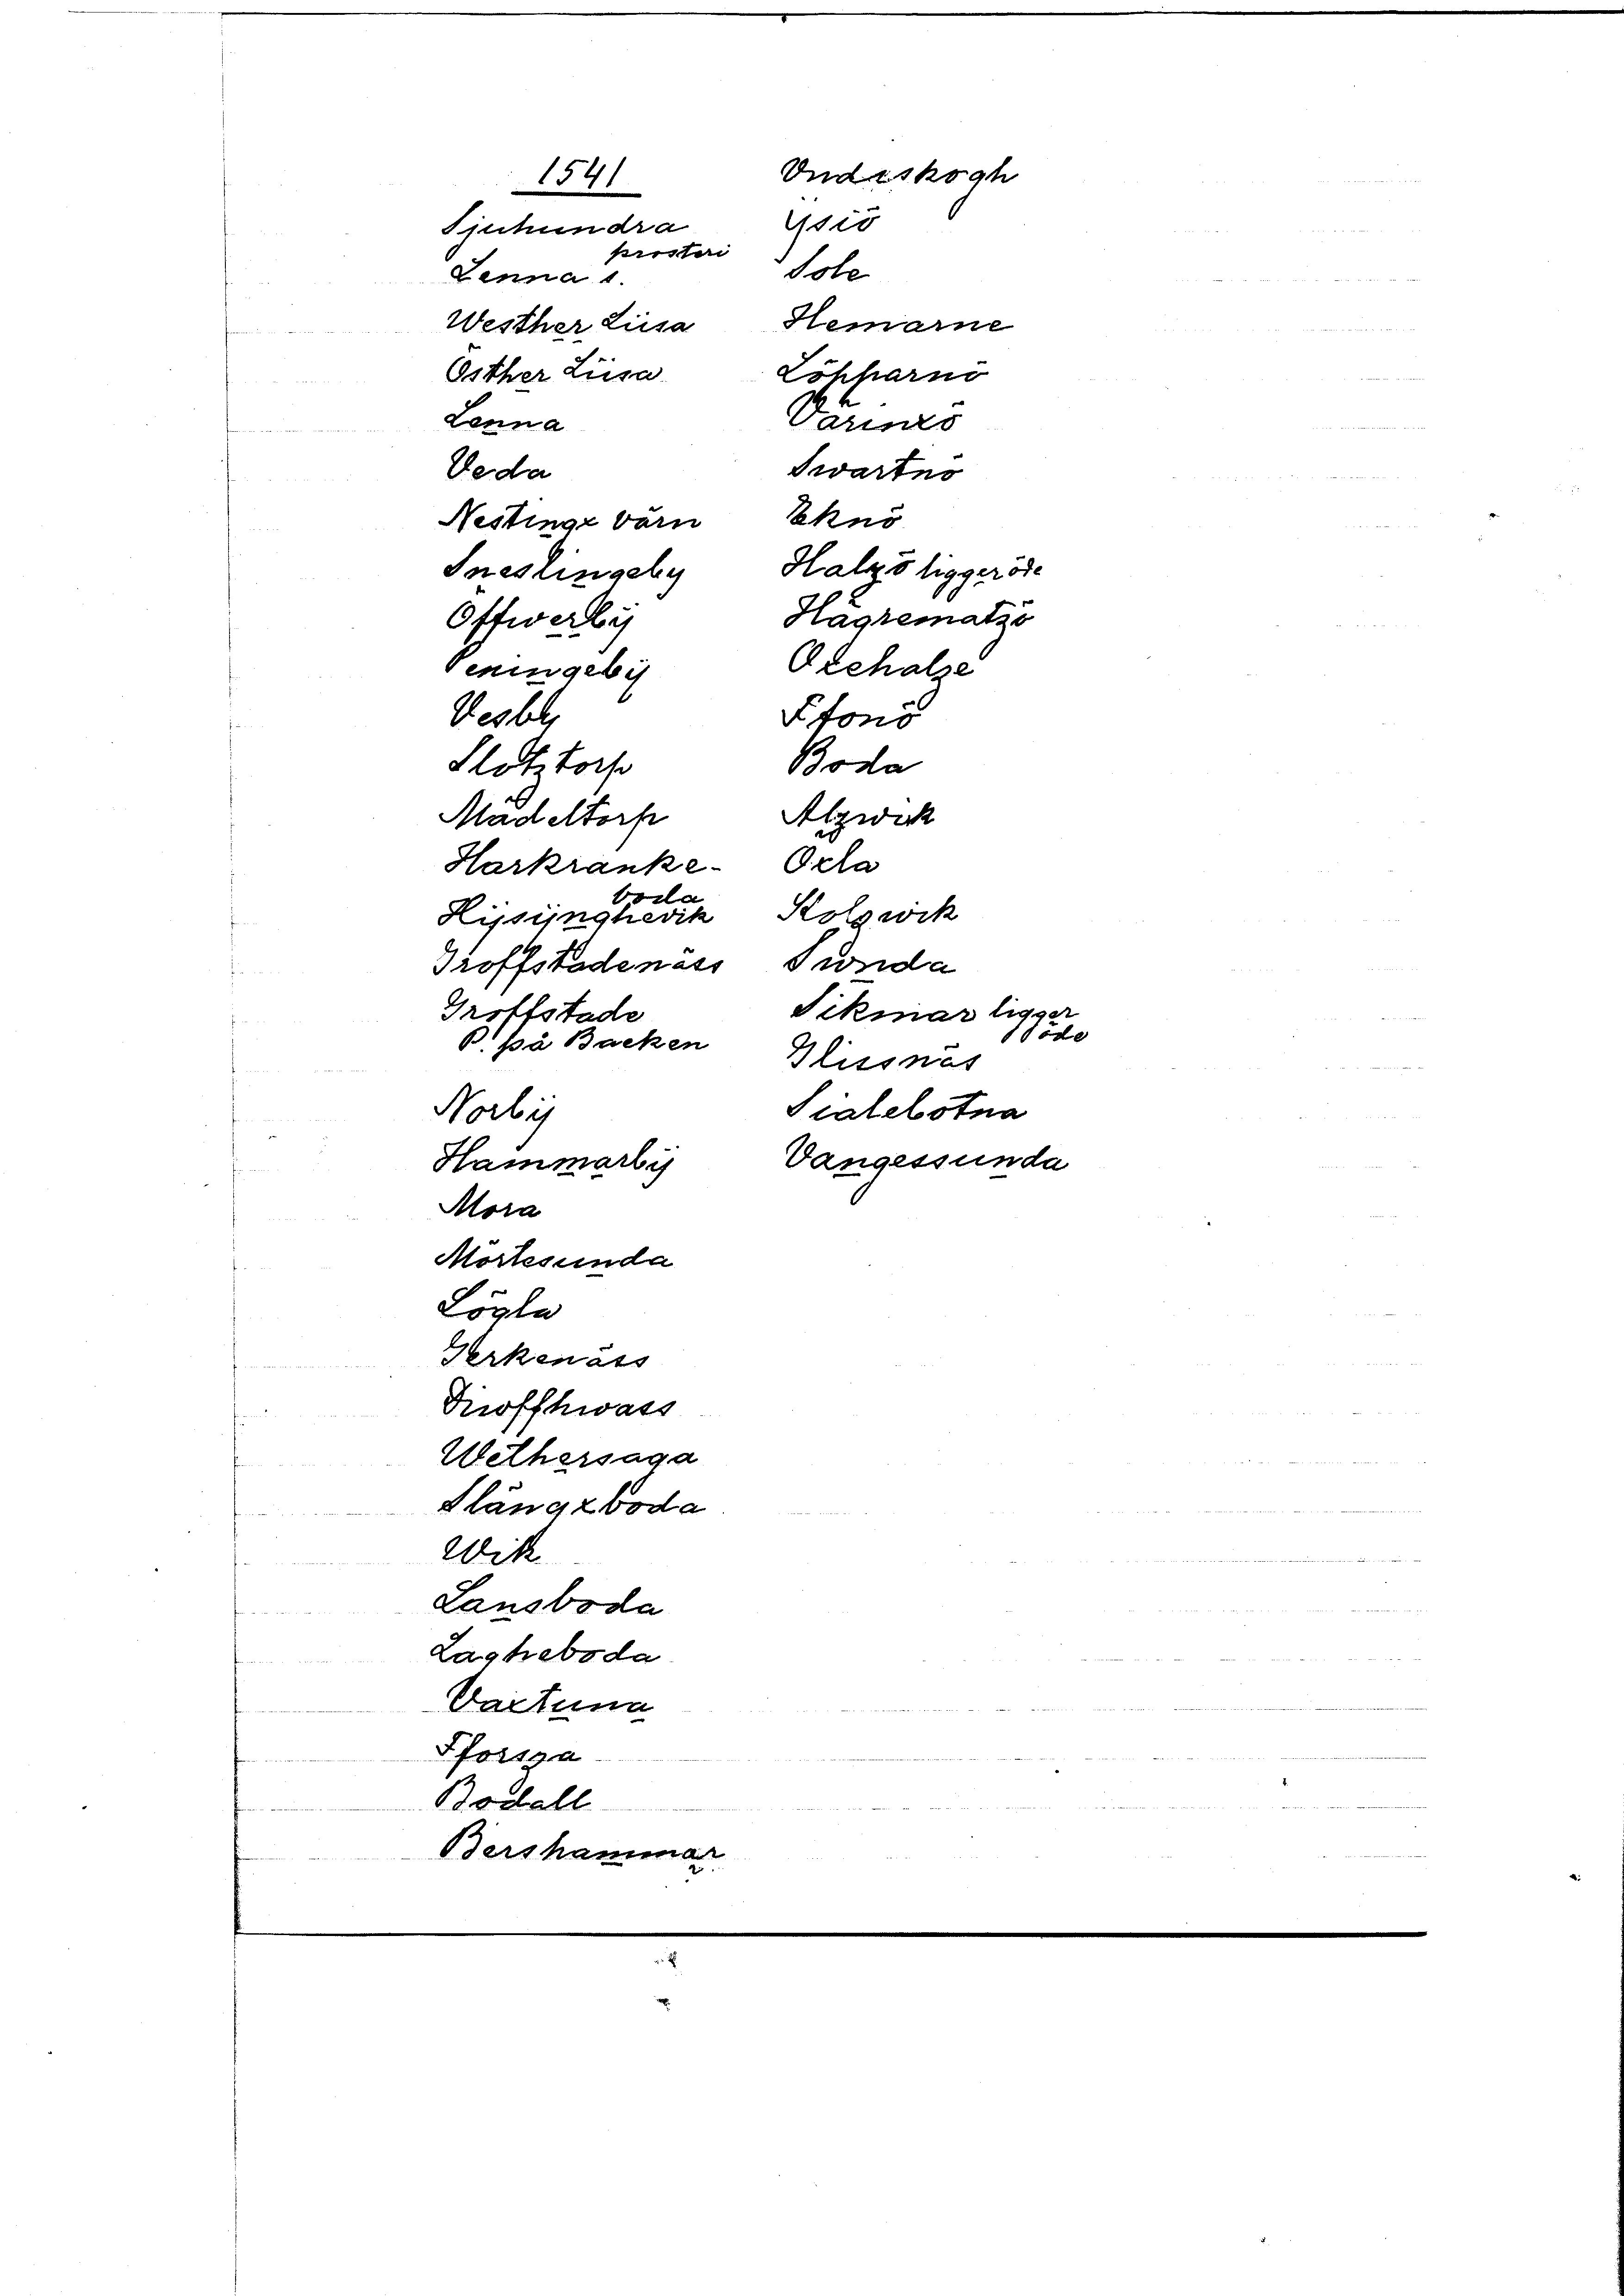 1541
Sjuhundra
prosteri
Lenna s.
Westher Lüsa
Östher Lüsa
Lenna
Veda
Nestinge värn
Sneslingeby
Öffwerbÿ
Peningebÿ
Vesby
Slotztorp
Mädeltorp
Harkranke-
boda
Hÿsÿnghevik
Groffstadenäss
Groffstade
P. på Backen
Norbÿ
Hammarbÿ
Mora
Mörtesunda
Lögla
Gerkenäss
Wethersaga
Slängxboda
Wik
Lansboda
Lagheboda
Vartuna
Fforsza
Bodall
Bershammar
Undeskogh
Ysiö
Sole
Hemarne
Löpparnö
Swartnö
Eknö
Halzö ligger öde
Hägrematzö
Oxehalze
Boda
Alzwik
Oxla
Kolzwik
Sunda
Sikmar ligger
öde
Glissnäs
Sialebotna
Vangessunda